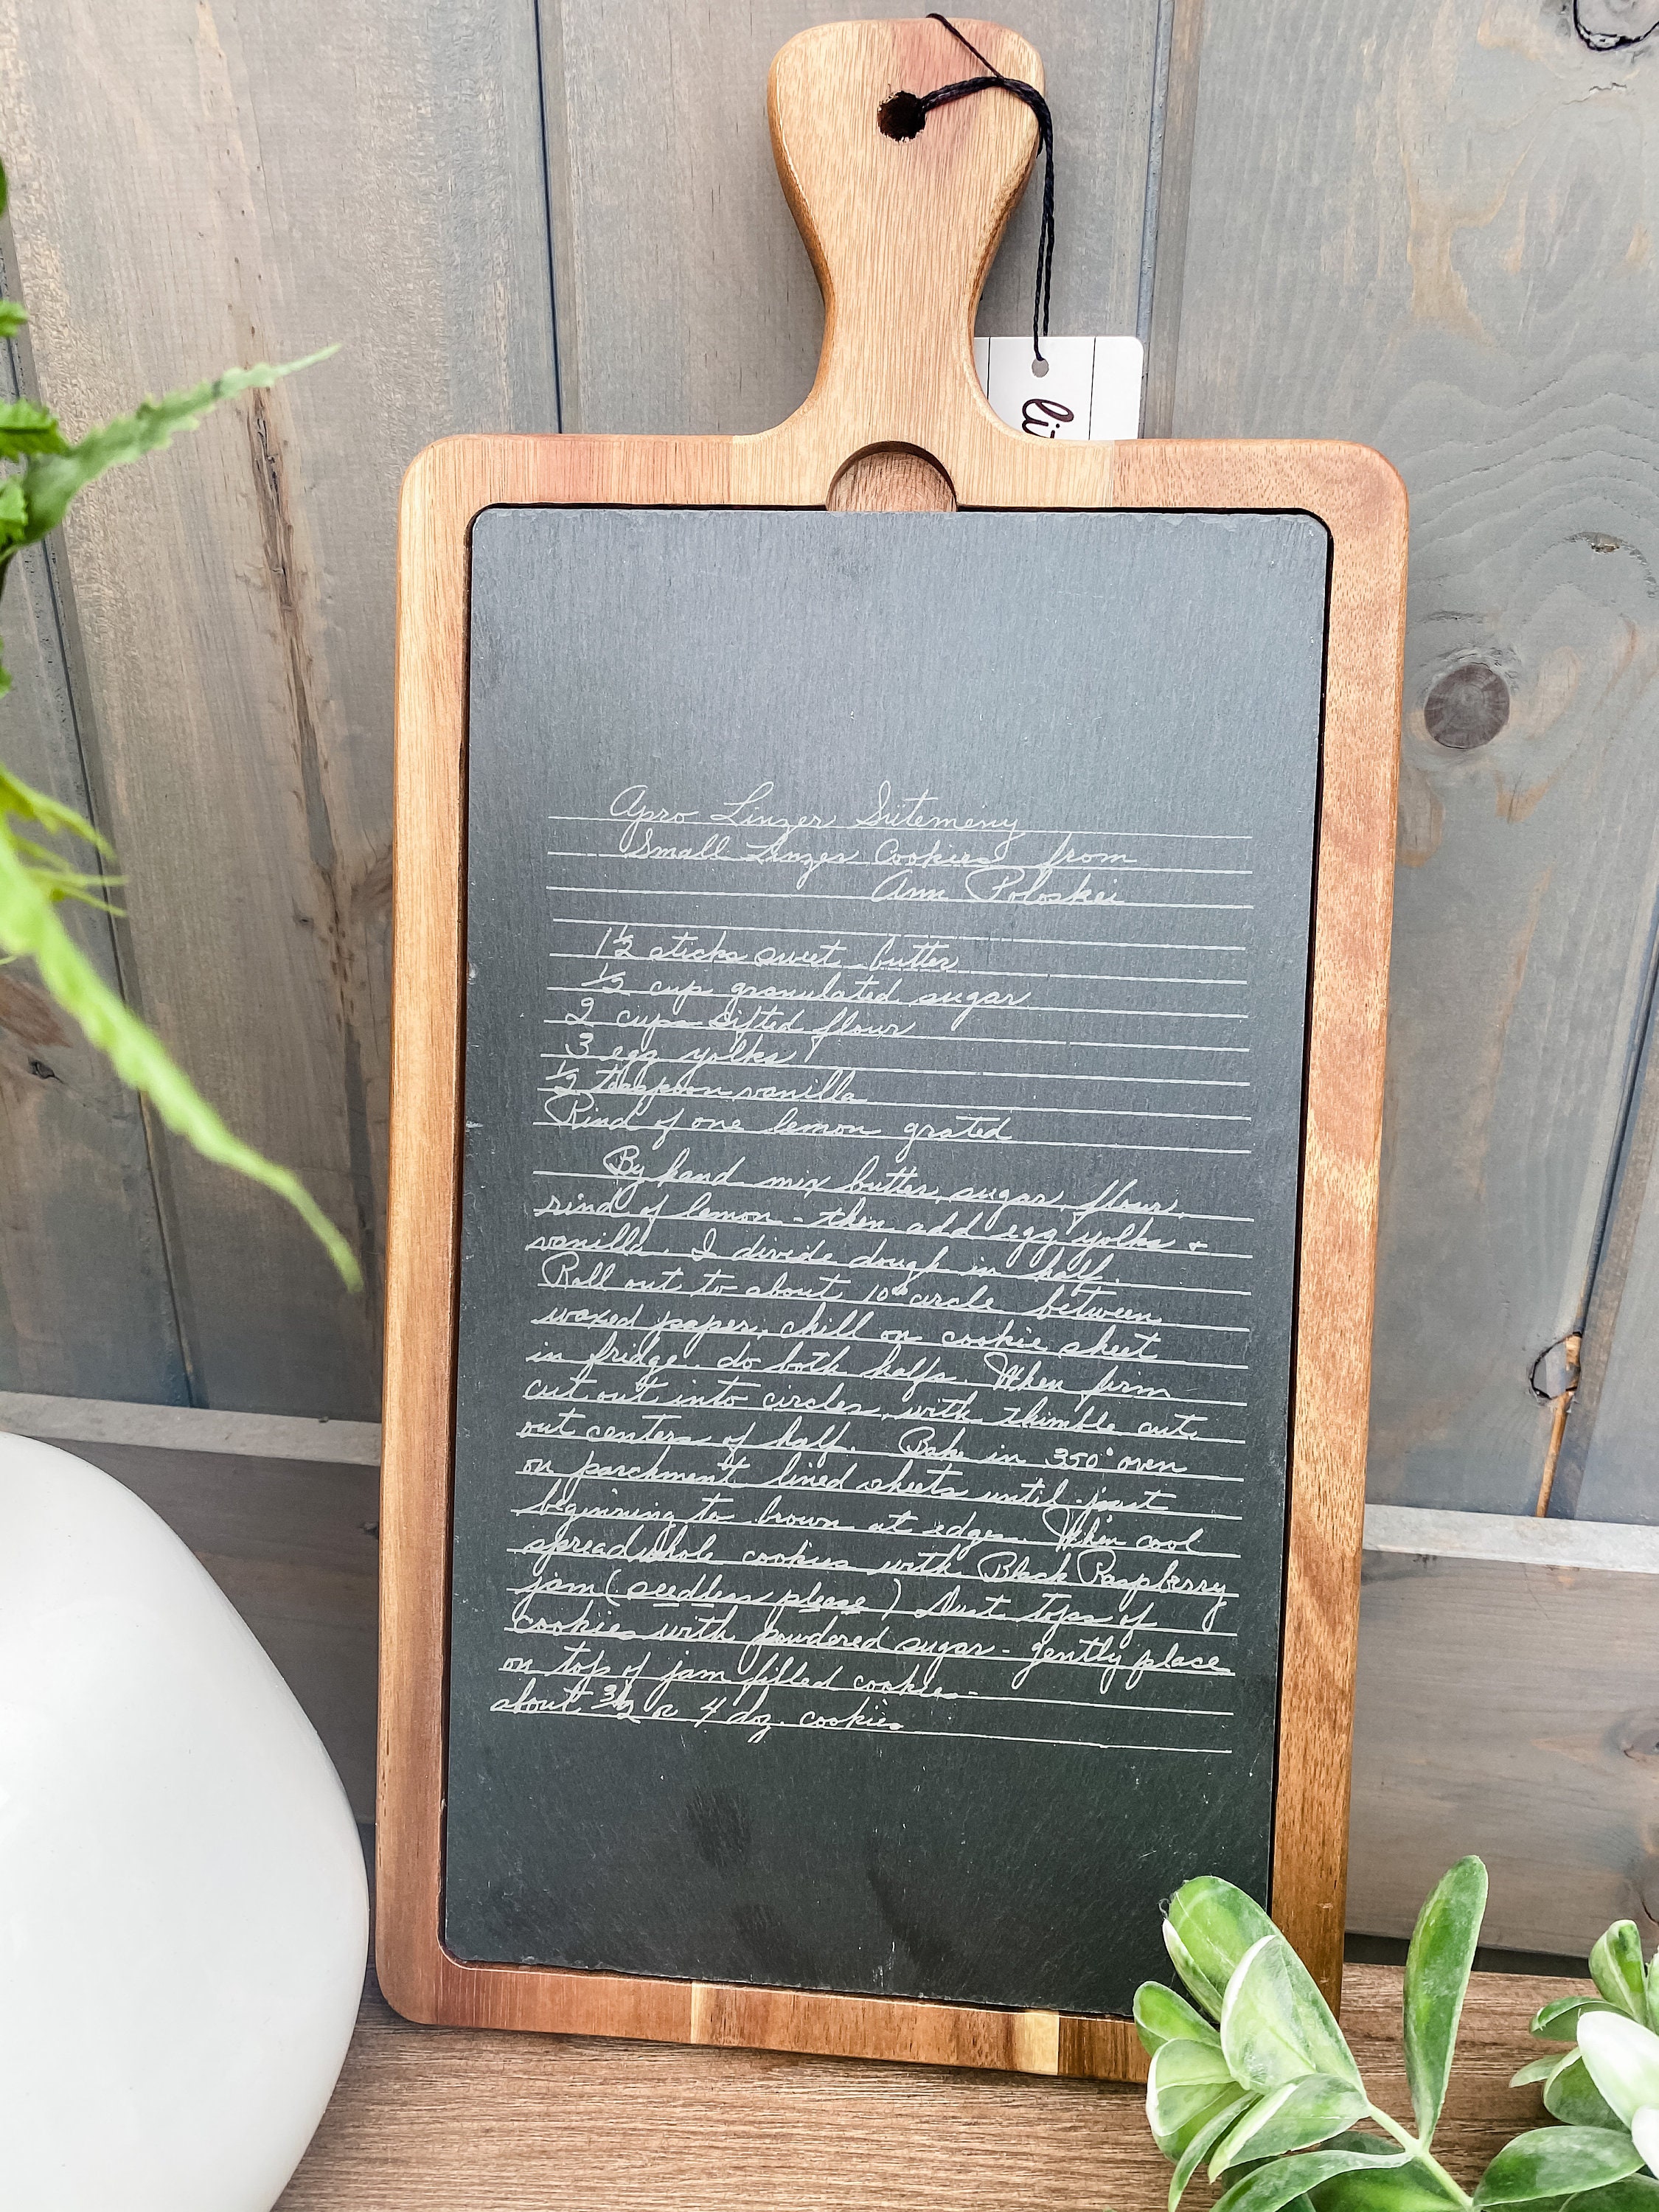 li
Apro Linzer Sütemeny
Small Linzer Cookies from
Ann Poloskei
1½ sticks sweet butter
½ cup granulated sugar
2 cups sifted flour
3 egg yolks
½ teaspoon vanilla
Rind of one lemon grated
By hand mix butter, sugar, flour,
rind of lemon - then add egg yolks +
vanilla. I divide dough in half.
Roll out to about 10" circle between
waxed paper, chill on cookie sheet
in fridge. do both halfs. When firm
cut out into circles, with thimble cut
out centers of half. Bake in 350° oven
on parchment lined sheets until just
beginning to brown at edges. When cool
spread whole cookies with Black Raspberry
jam (seedless please) Dust tops of
cookies with powdered sugar - gently place
on top of jam filled cookies -
about 3½ or 4 doz. cookies